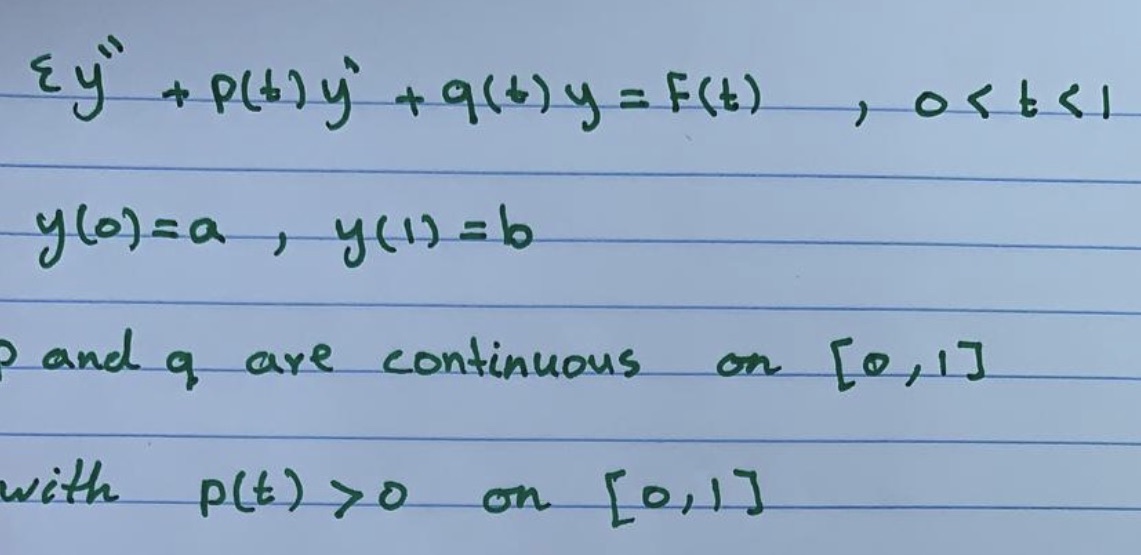 εy'' + p(t)y' + q(t)y = F(t) , 0 < t < 1
y(0) = a , y(1) = b
p and q are continuous on [0,1]
with p(t) > 0 on [0,1]